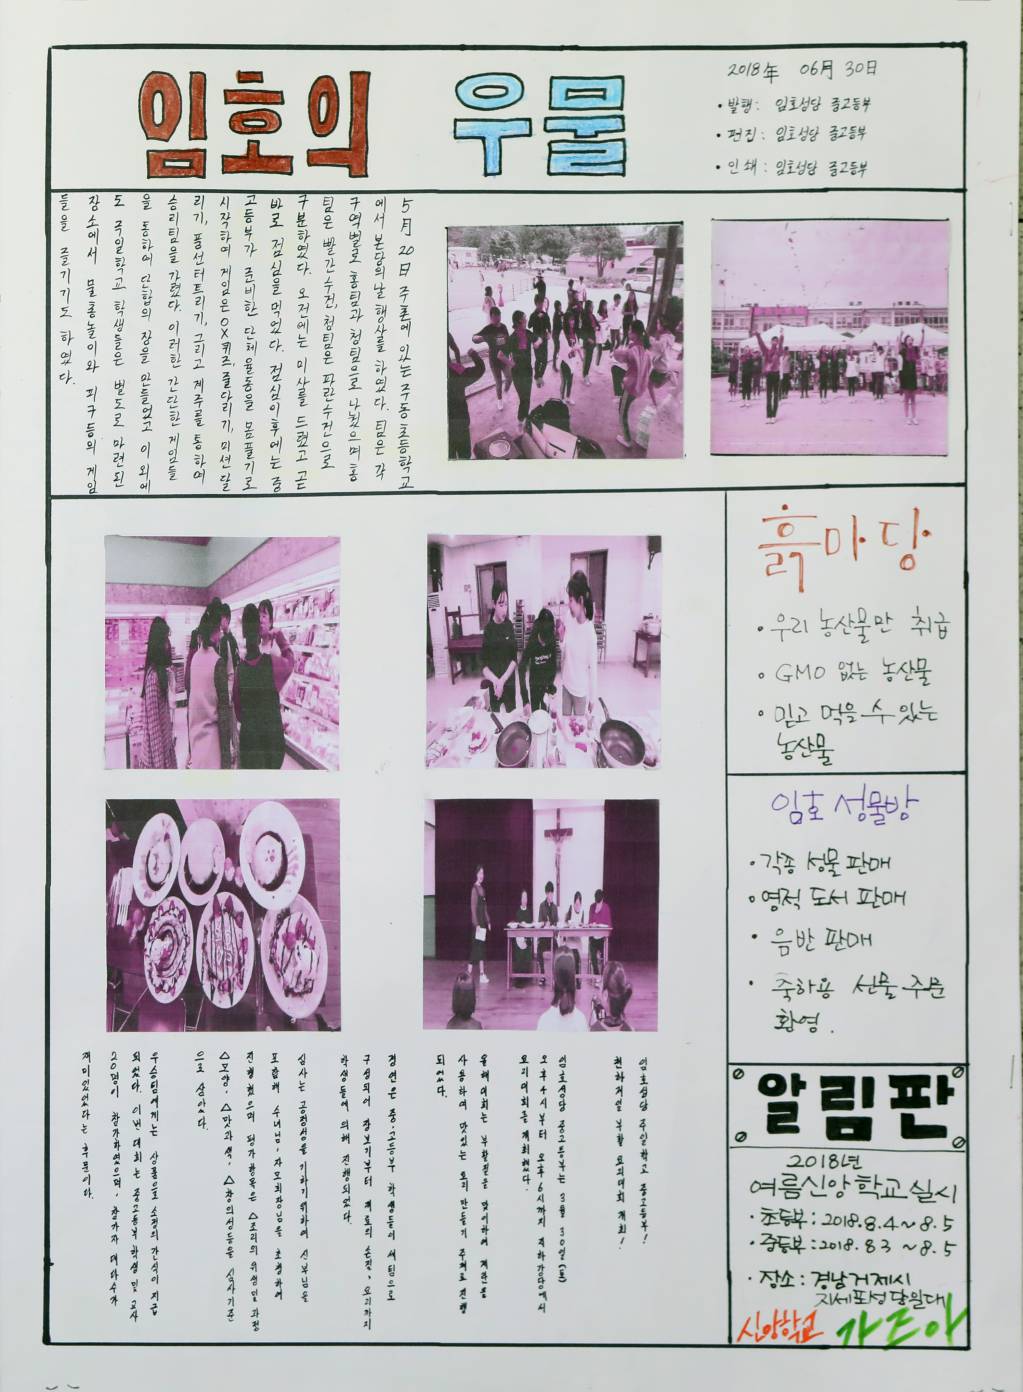 임호의 우물
2018年 06月 30日
• 발행 : 임호성당 중고등부
• 편집 : 임호성당 중고등부
• 인쇄 : 임호성당 중고등부
5月 20日 주촌에 있는 주동초등학교
에서 본당의 날 행사를 하였다. 팀은 각
구역별로 홍팀과 청팀으로 나눴으며 홍
팀은 빨간수건, 청팀은 파란수건으로
구분하였다. 오전에는 미사를 드렸고 곧
바로 점심을 먹었다. 점심이후에는 중
고등부가 준비한 단체율동을 몸풀기로
시작하여 게임은 OX퀴즈, 줄다리기, 미션달
리기, 풍선터트리기, 그리고 계주를 통하여
승리팀을 가렸다. 이러한 간단한 게임들
을 통하여 단합의 장을 만들었고 이 외에
도 주일학교 학생들은 별도로 마련된
장소에서 물총놀이와 피구 등의 게임
들을 즐기기도 하였다.
흙마당
• 우리 농산물만 취급
• GMO 없는 농산물
• 믿고 먹을 수 있는
농산물
임호 성물방
• 각종 성물 판매
• 영적 도서 판매
• 음반 판매
• 축하용 선물 주문
환영.
임호성당 주일학교 중고등부!
천하제일 부활 요리대회 개최!
임호성당 중고등부는 3월 30일(토)
오후 4시부터 오후 6시까지 지하강당에서
요리대회를 개최했다.
올해 대회는 부활절을 맞이하여 계란을
사용하여 맛있는 요리 만들기 주제로 진행
되었다.
경연은 중·고등부 학생들이 세 팀으로
구성되어 장보기부터 재료의 손질, 요리까지
학생들에 의해 진행되었다.
심사는 공정성을 기하기 위하여 신부님을
포함해 수녀님, 자모회장님을 초청하여
진행했으며 평가항목은 △조리의 위생 및 과정
△모양, △맛과 색, △창의성등을 심사기준
으로 삼았다.
우승팀에게는 상품으로 소정의 간식이 지급
되었다. 이번 대회는 중고등부 학생 및 교사
20명이 참가하였으며, 참가자 대다수가
재미있었다는 후문이다.
알림판
2018년
여름신앙학교 실시
• 초등부 : 2018.8.4 ~ 8.5
• 중등부 : 2018.8.3 ~ 8.5
• 장소 : 경남 거제시
지세포성당일대
신앙학교 가즈아